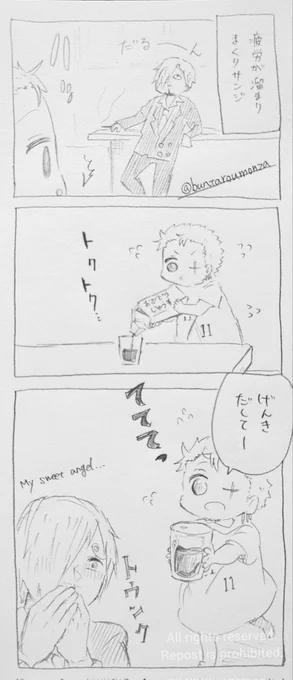 疲労が溜まり
まくりサンジ
だる〜ん
@bunzaroumonza
トクトク…
11
げんき
だして〜
てててっ
My sweet angel...
トゥンク
11
All rights reserved.
Repost is prohibited.